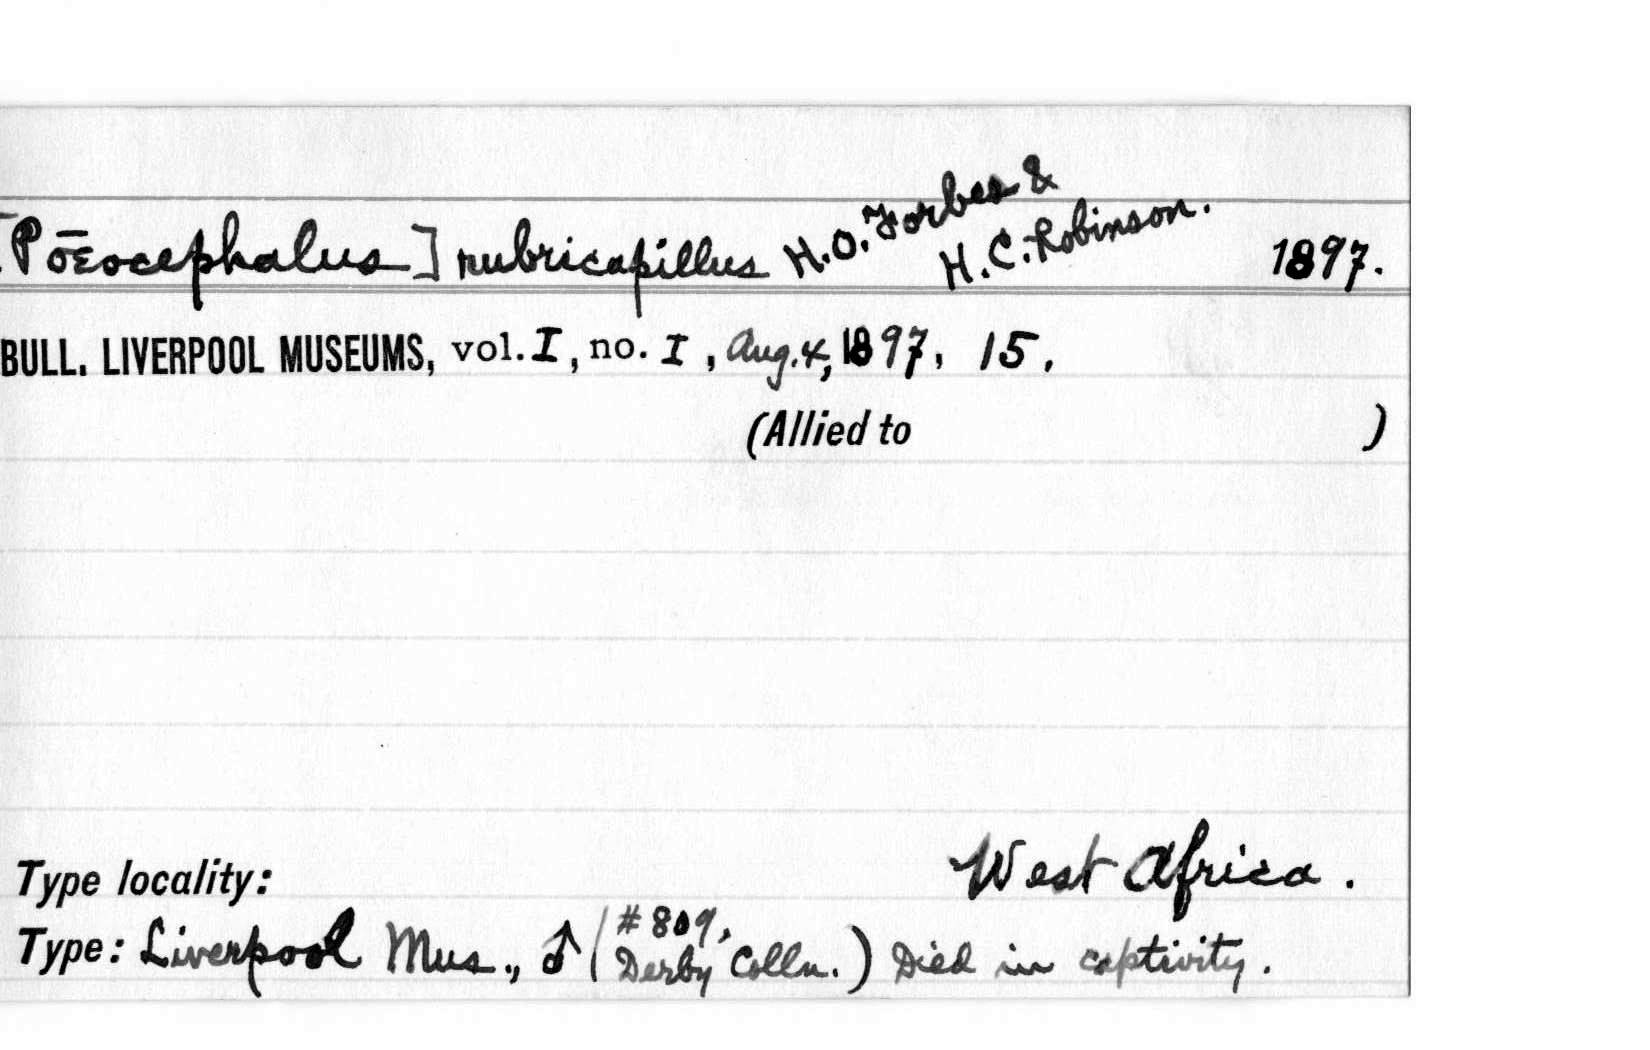 [Pōeocephalus] rubricapillus H.O. Forbes & H.C. Robinson. 1897.
BULL. LIVERPOOL MUSEUMS, vol. I, no. I, Aug. 4, 1897, 15.
(Allied to )
Type locality: West Africa.
Type: Liverpool Mus., ♂ (#809, Derby Colln.) Died in captivity.